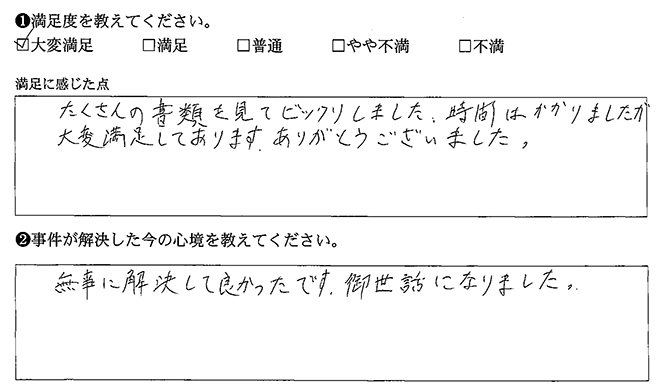 ❶満足度を教えてください。
☑大変満足 □満足 □普通 □やや不満 □不満
満足に感じた点
たくさんの書類を見てビックリしました、時間はかかりましたが
大変満足しております、ありがとうございました。
❷事件が解決した今の心境を教えてください。
無事に解決して良かったです、御世話になりました。